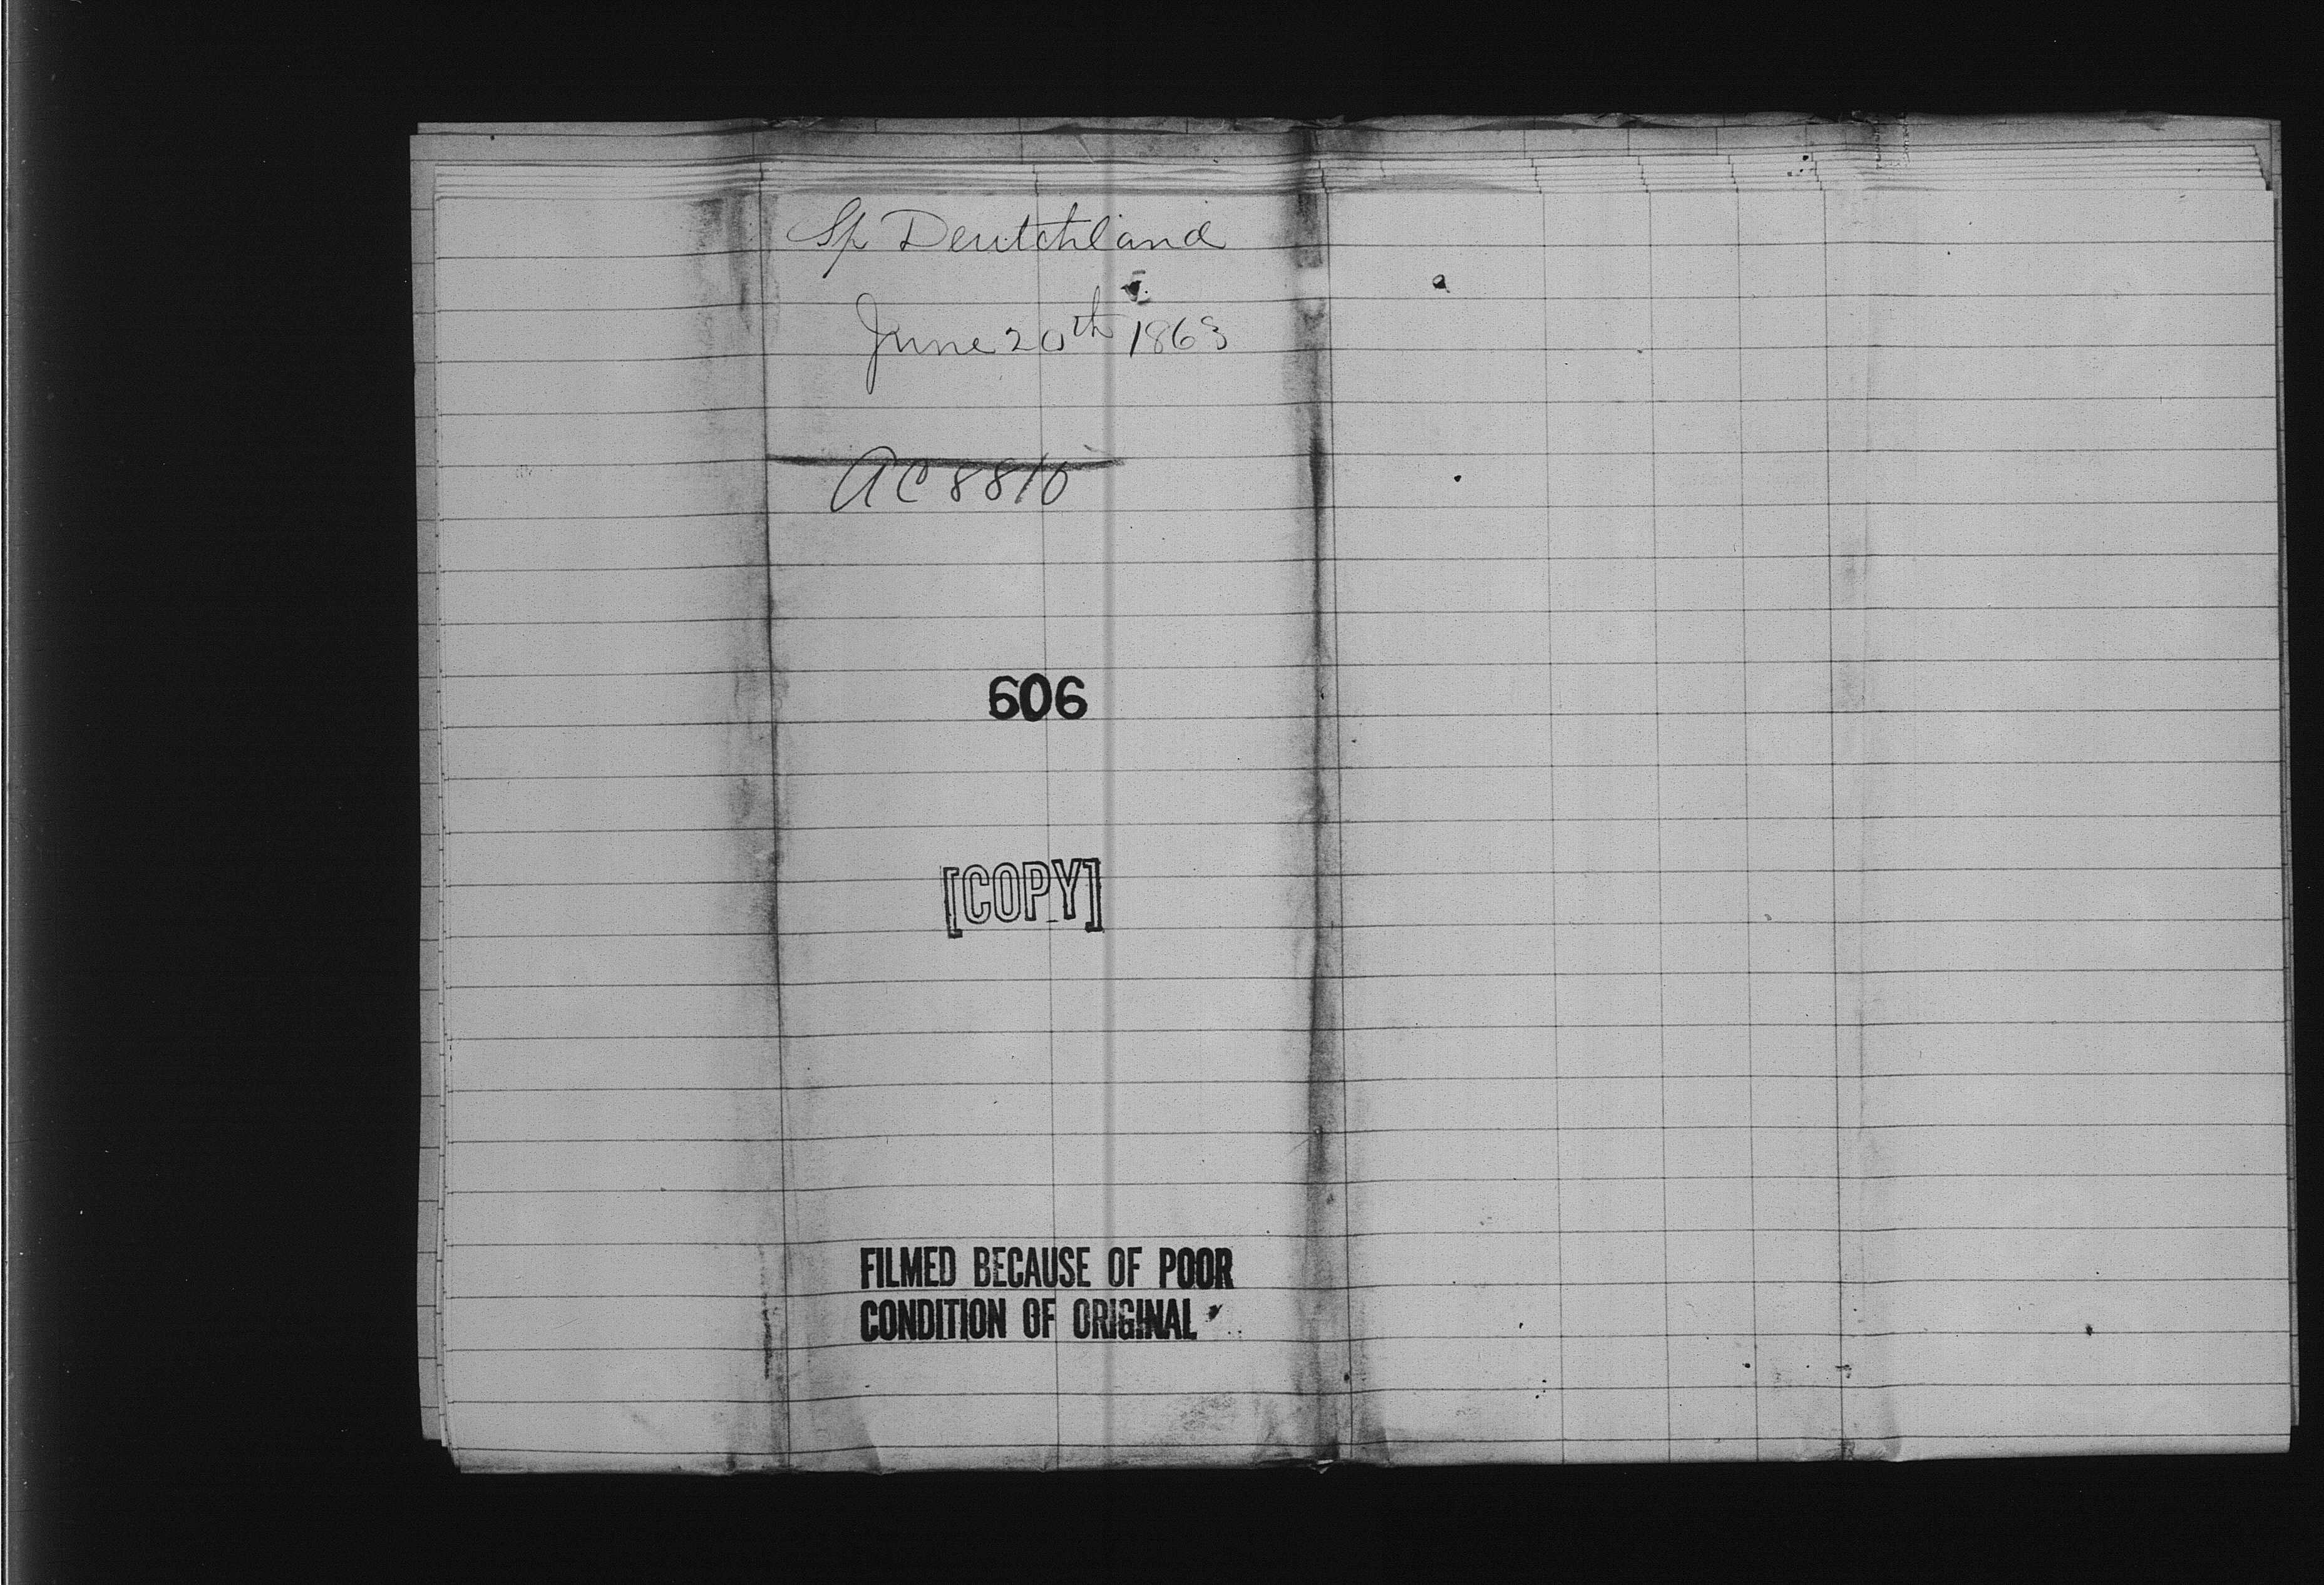 Sp Deutchland
June 20th 1863
AC 8810
606
[COPY]
FILMED BECAUSE OF POOR
CONDITION OF ORIGINAL